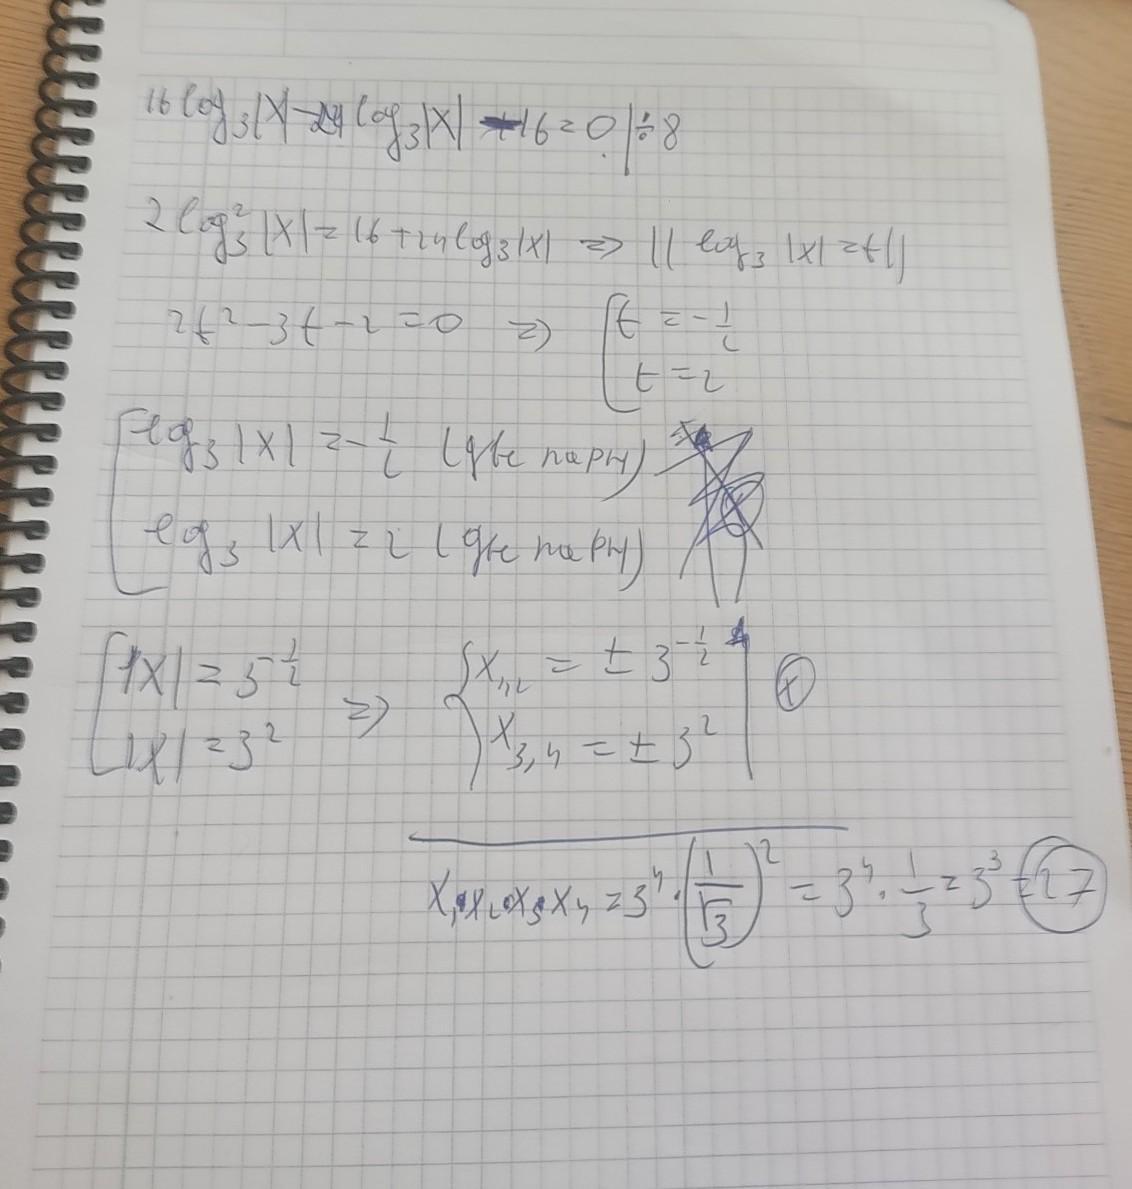 16 log₃|x| - 24 log₃|x| - 16 = 0 | ÷ 8
2 log₃²|x| = 16 + 24 log₃|x| => || log₃ |x| = t ||
2t² - 3t - 2 = 0 => [ t = -1/2
t = 2
[ log₃ |x| = -1/2 (две пары)
log₃ |x| = 2 (две пары)
[ |x| = 3^(-1/2) => { x₁,₂ = ± 3^(-1/2)
|x| = 3² x₃,₄ = ± 3²
x₁·x₂·x₃·x₄ = 3⁴ · (1/√3)² = 3⁴ · 1/3 = 3³ = 27